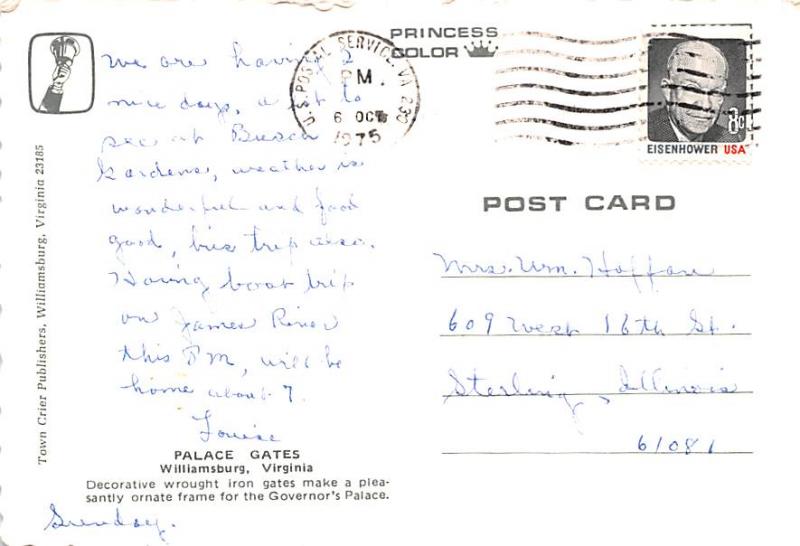 We are having 2
nice days, a lot to
see at Busch
Gardens, weather is
wonderful and food
good, bus trip also.
Having boat trip
on James River
this PM, will be
home about 7.
Louise
Sunday.
PALACE GATES
Williamsburg, Virginia
Decorative wrought iron gates make a plea-
santly ornate frame for the Governor's Palace.
Town Crier Publishers, Williamsburg, Virginia 23185
U.S. POSTAL SERVICE, VA 230
PM
6 OCT
1975
PRINCESS
COLOR
8c
EISENHOWER USA
POST CARD
Mrs. Wm. Hoffan
609 West 16th St.
Sterling, Illinois
61081